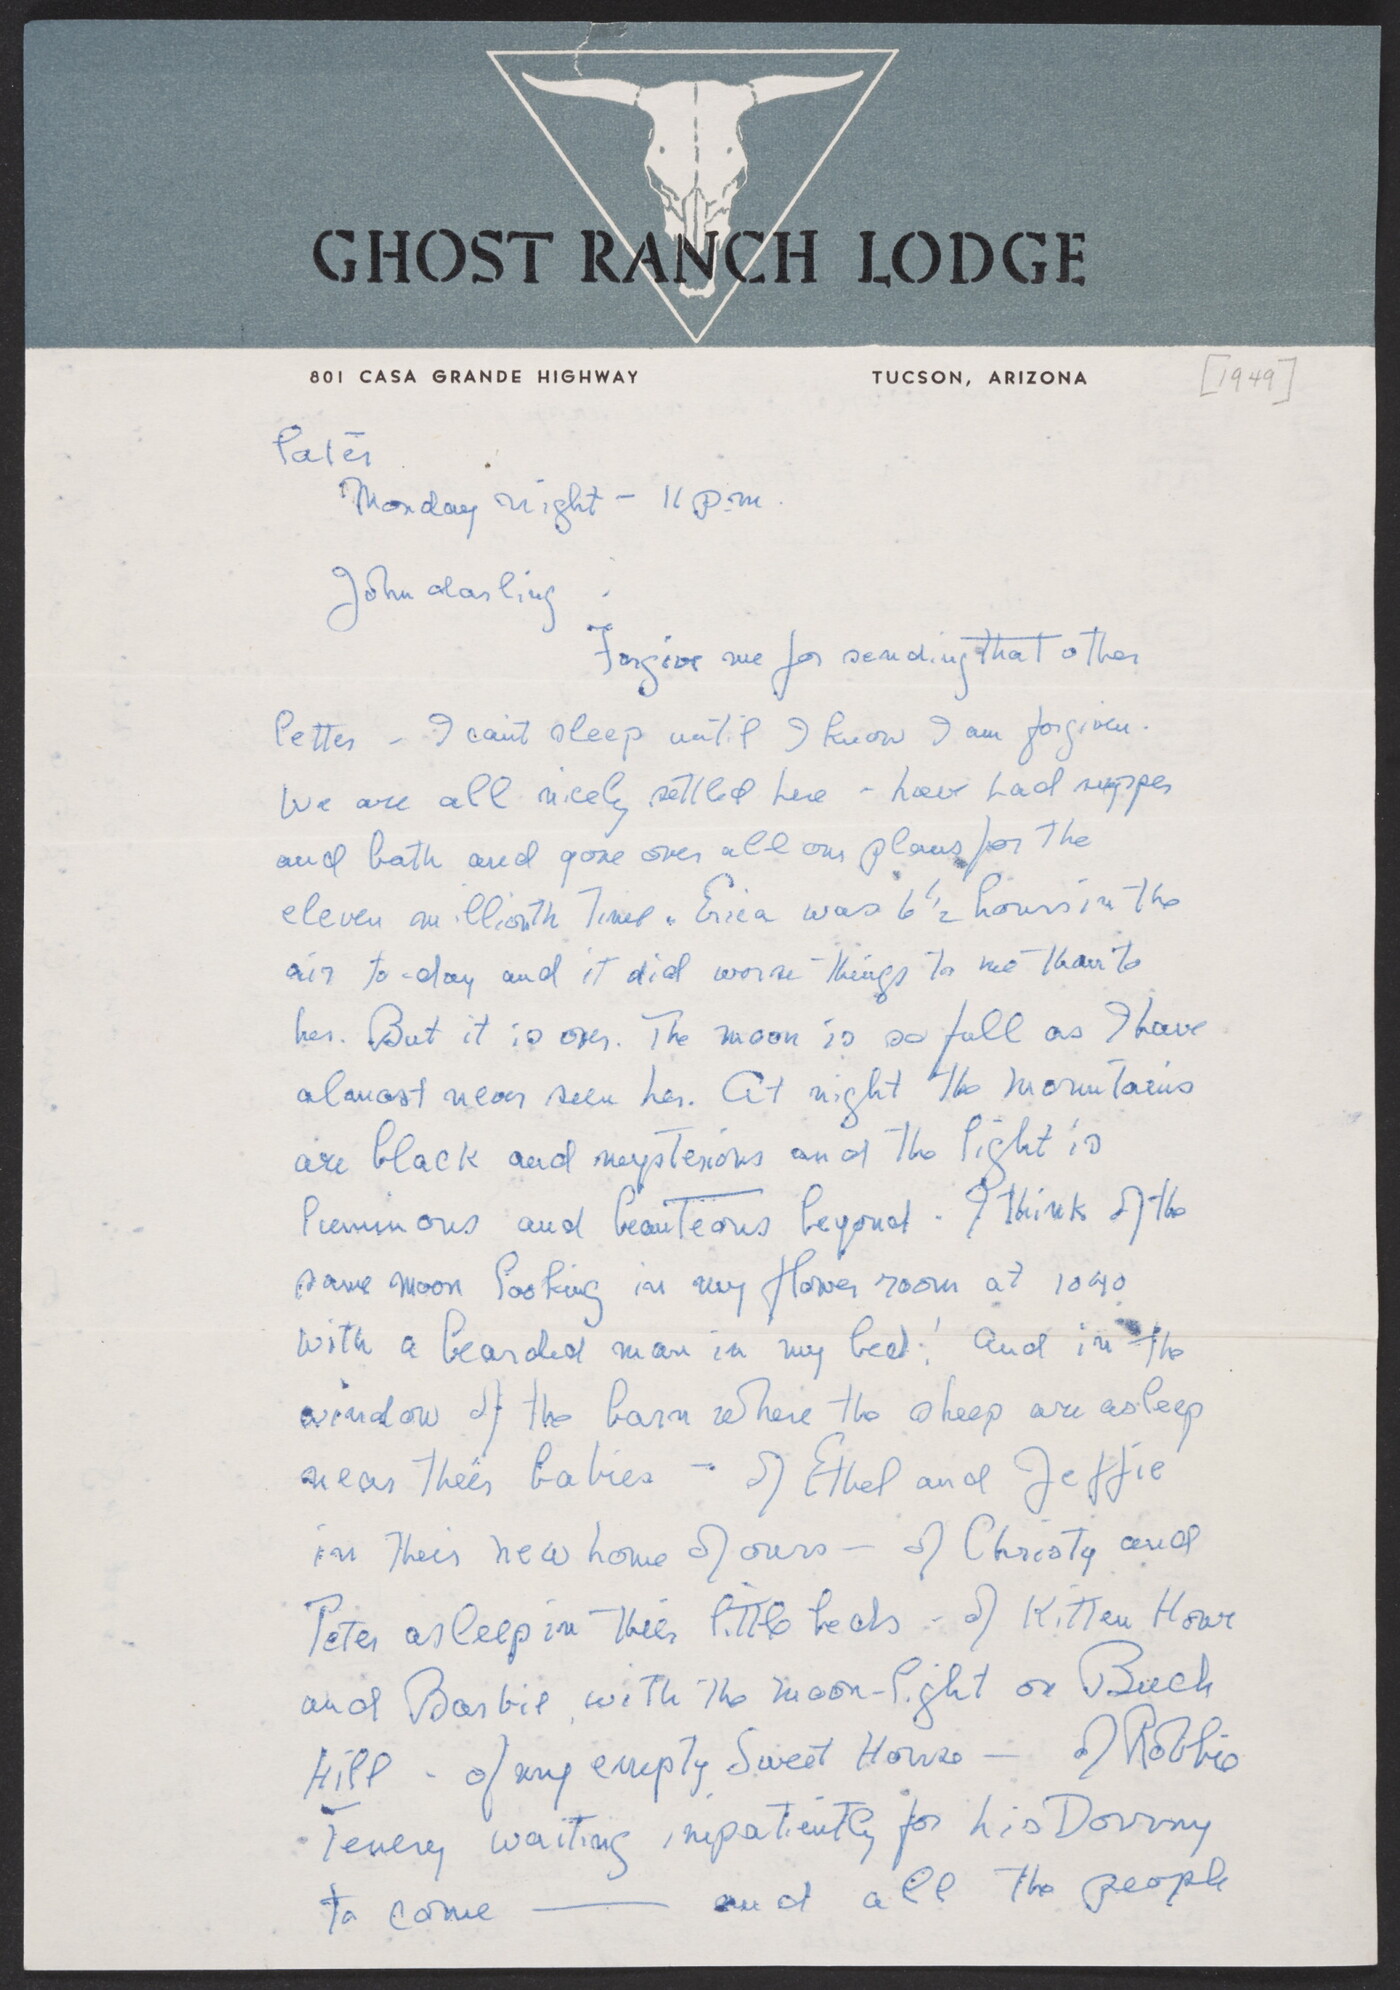 GHOST RANCH LODGE
801 CASA GRANDE HIGHWAY TUCSON, ARIZONA [1949]
Later
Monday night - 11 p.m.
John darling
Forgive me for sending that other
letter - I can't sleep until I know I am forgiven.
We are all nicely settled here - have had supper
and bath and gone over all our plans for the
eleven millionth time. Erica was 6 1/2 hours in the
air to-day and it did worse things to me than to
her. But it is over. The moon is so full as I have
almost never seen her. At night the mountains
are black and mysterious and the light is
luminous and beauteous beyond. I think of the
same moon looking in my flower room at 1040
with a bearded man in my bed! And in the
window of the barn where the sheep are asleep
near their babies - of Ethel and Jeffie
in their new home of ours - of Christy and
Peter asleep in their little beds - of Kitten Howe
and Barbie, with the moon-light on Buck
Hill - of my empty Sweet House - of Robbie
Tenery waiting impatiently for his
to come — and all the people